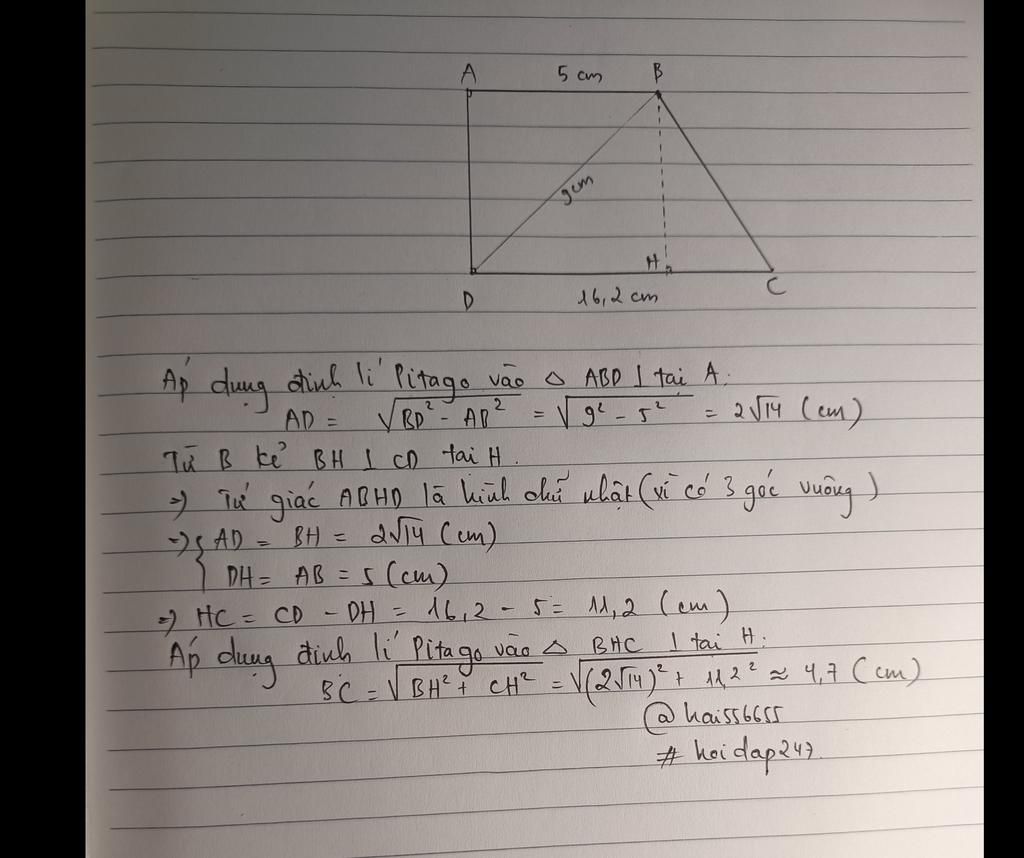 A 5 cm B
9cm
H
D 16,2 cm C
Áp dụng định lí Pitago vào △ ABD ⊥ tại A:
AD = √(BD² - AB²) = √(9² - 5²) = 2√14 (cm)
Từ B kẻ BH ⊥ CD tại H.
=> Tứ giác ABHD là hình chữ nhật (vì có 3 góc vuông)
=> { AD = BH = 2√14 (cm)
DH = AB = 5 (cm)
=> HC = CD - DH = 16,2 - 5 = 11,2 (cm)
Áp dụng định lí Pitago vào △ BHC ⊥ tại H:
BC = √(BH² + CH²) = √((2√14)² + 11,2²) ≈ 4,7 (cm)
@hai556655
# hoidap247.